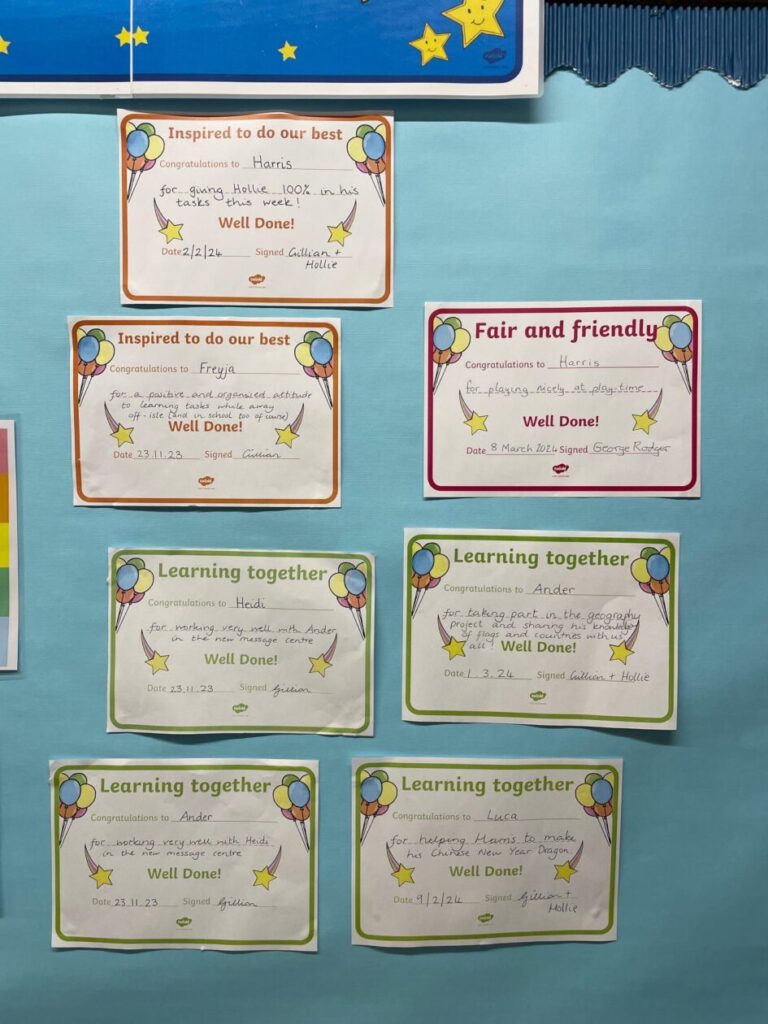 twinkl
Inspired to do our best
Congratulations to Harris
for giving Hollie 100% in his
tasks this week!
Well Done!
Date 2/2/24 Signed Gillian +
Hollie
twinkl
Inspired to do our best
Congratulations to Freyja
for a positive and organised attitude
to learning tasks while away
off-isle (and in school too of course)
Well Done!
Date 23.11.23 Signed Gillian
twinkl
Fair and friendly
Congratulations to Harris
for playing nicely at play-time
Well Done!
Date 8 March 2024 Signed George Rodger
twinkl
Learning together
Congratulations to Heidi
for working very well with Ander
in the new message centre
Well Done!
Date 23.11.23 Signed Gillian
twinkl
Learning together
Congratulations to Ander
for taking part in the geography
project and sharing his knowledge
of flags and countries with us
all! Well Done!
Date 1.3.24 Signed Gillian + Hollie
twinkl
Learning together
Congratulations to Ander
for working very well with Heidi
in the new message centre
Well Done!
Date 23.11.23 Signed Gillian
twinkl
Learning together
Congratulations to Luca
for helping Harris to make
his Chinese New Year Dragon.
Well Done!
Date 9/2/24 Signed Gillian +
Hollie
twinkl